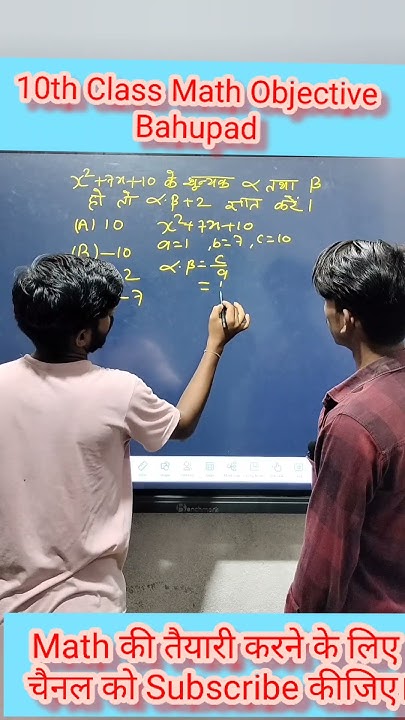 10th Class Math Objective
Bahupad
x²+7x+10 के शून्यक α तथा β
हो तो α·β+2 ज्ञात करें।
(A) 10 x²+7x+10
(B) -10 a=1, b=7, c=10
α·β = c/a
2
= 1
-7
Benchmark
Math की तैयारी करने के लिए
चैनल को Subscribe कीजिए।